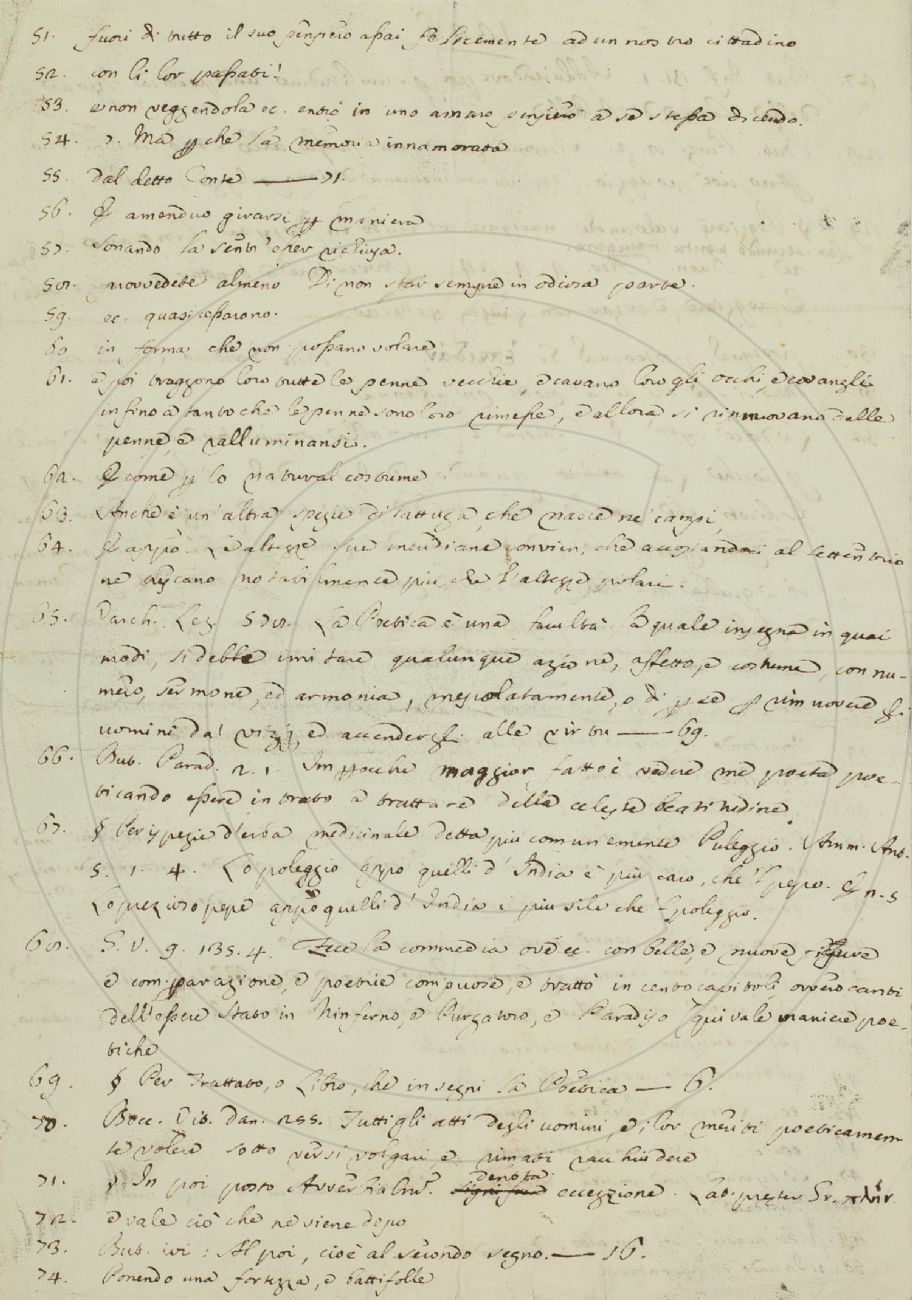 51. fuori di tutto il suo pensiero assai felicemente ad un nostro cittadino
52. con li lor passati!
53. e non veggendola ec. entrò in uno amaro pensiero a se stessa dicendo.
54. 7. Ma che la memoria innamorata
55. dal detto Conte —— 71.
56. E amenduo girarsi maniera
57. Sonando la sentì esser richiusa.
58. provvedete almeno Di non star sempre in odiosa parte.
59. ec. quasi cessarono.
60 in forma che non possano volare
61. e poi traggono loro tutte le penne vecchie, e cavano loro gli occhi, e
infino a tanto che le penne sono loro rimesse, e allora si rinnuovano delle
penne, e ralluminansi.
62. E come lo natural costume
63. Anche è un' altra spezie di lattuga, che nasce ne' campi
64. E appo. Le altezze sue meridiane convien, che accostandosi al settentrio
ne crescano notabilmente più, che l'altezze polari.
65. Varch. Lez. 578. La Poetica è una facultà, la quale insegna in quai
modi, si debbe imitare qualunque azione, affetto, e costume, con nu-
mero, sermone, ed armonia, mescolatamente, o di rimuovere gli
uomini da' vizzj, ed accendergli alle virtu —— 69.
66. But. Parad. 2. 1. Imperocchè maggior fatto è vedere me poeta poe-
ticando essere intrato a trattare della celeste beatitudine
67. § Per ispezie d'erba medicinale detta più comunemente Puleggio. Amm. Ant.
5. 1. 4. Lo poleggio appo quelli d' India è più caro, che 'l pepe. E n. 5
Lo prezioso pepe appo quelli d' India è più vile che 'l poleggio.
68. G. V. 9. 135. 4. Fece la commedia ove ec. con belle, e nuove figure
e comparazione, e poetrie compuose, e trattò in cento capitoli ovvero canti
dell'essere stato in Ninferno, e Purgatoro, e Paradiso (qui vale maniere poe-
tiche
69. § Per Trattato, o Libro, che insegni la Poetica — 6.
70. Bocc. Vit. Dan. 255. Tutti gli atti degli uomini, e i lor meriti poeticamen
te volere sotto versi volgari e rimati racchiudere
71. § In poi posto Avverbialm. denota eccezzione. Lat. praeter Gr. πλήν.
72. e vale ciò che ne viene dopo
73. But. ivi: Al poi, cioè al secondo segno. —— 16.
74. Ponendo una fortezza, e battifolle